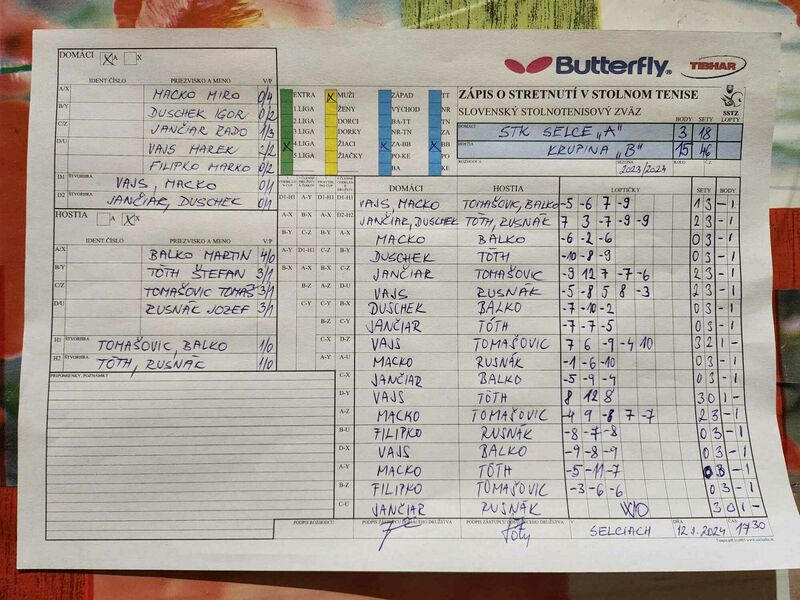 DOMÁCI X A X
IDENT.ČÍSLO PRIEZVISKO A MENO V/P
A/X MACKO MIRO 0/4
B/Y DUSCHEK IGOR 0/2
C/Z JANČIAR RADO 1/3
D/U VAJS MAREK 2/2
FILIPKO MARKO 0/2
D1 ŠTVORHRA VAJS, MACKO 0/1
D2 ŠTVORHRA JANČIAR, DUSCHEK 0/1
HOSTIA A X X
IDENT.ČÍSLO PRIEZVISKO A MENO V/P
A/X BALKO MARTIN 4/0
B/Y TÓTH ŠTEFAN 3/1
C/Z TOMAŠOVIC TOMAŠ 3/1
D/U RUSNÁK JOZEF 3/1
H1 ŠTVORHRA TOMAŠOVIC, BALKO 1/0
H2 ŠTVORHRA TÓTH, RUSNÁK 1/0
PRIPOMIENKY, POZNÁMKY
Butterfly TIBHAR
EXTRA X MUŽI ZÁPAD TT
1.LIGA ŽENY VÝCHOD NR
2.LIGA DORCI BA-TT TN
3.LIGA DORKY NR-TN ZA
X 4.LIGA ŽIACI X ZA-BB X BB
5.LIGA ŽIAČKY PO-KE PO
BA KE
ZÁPIS O STRETNUTÍ V STOLNOM TENISE
SLOVENSKÝ STOLNOTENISOVÝ ZVÄZ SSTZ
DOMÁCI STK SELCE „A“ BODY 3 SETY 18 LOPTY
HOSTIA KRUPINA „B“ 15 46
ROZHODCA SEZÓNA 2023/2024 KOLO Č.
DOMÁCI HOSTIA LOPTIČKY SETY BODY
VAJS, MACKO TOMAŠOVIC, BALKO -5 -6 7 -9 1 3 - 1
JANČIAR, DUSCHEK TÓTH, RUSNÁK 7 3 -7 -9 -9 2 3 - 1
MACKO BALKO -6 -2 -6 0 3 - 1
DUSCHEK TÓTH -10 -8 -9 0 3 - 1
JANČIAR TOMAŠOVIC -9 12 7 -7 -6 2 3 - 1
VAJS RUSNÁK -5 -8 5 8 -3 2 3 - 1
DUSCHEK BALKO -7 -10 -2 0 3 - 1
JANČIAR TÓTH -7 -7 -5 0 3 - 1
VAJS TOMAŠOVIC 7 6 -9 -4 10 3 2 1 -
MACKO RUSNÁK -1 -6 -10 0 3 - 1
JANČIAR BALKO -5 -9 -4 0 3 - 1
VAJS TÓTH 8 12 8 3 0 1 -
MACKO TOMAŠOVIC -4 9 -8 7 -7 2 3 - 1
FILIPKO RUSNÁK -8 -7 -8 0 3 - 1
VAJS BALKO -9 -8 -9 0 3 - 1
MACKO TÓTH -5 -11 -7 0 3 - 1
FILIPKO TOMAŠOVIC -3 -6 -6 0 3 - 1
JANČIAR RUSNÁK WO 3 0 1 -
PODPIS ROZHODCU PODPIS ZÁSTUPCU DOMÁCEHO DRUŽSTVA PODPIS ZÁSTUPCU HOSŤUJÚCEHO DRUŽSTVA V SELCIACH DŇA 12.1.2024 ČAS 17:30